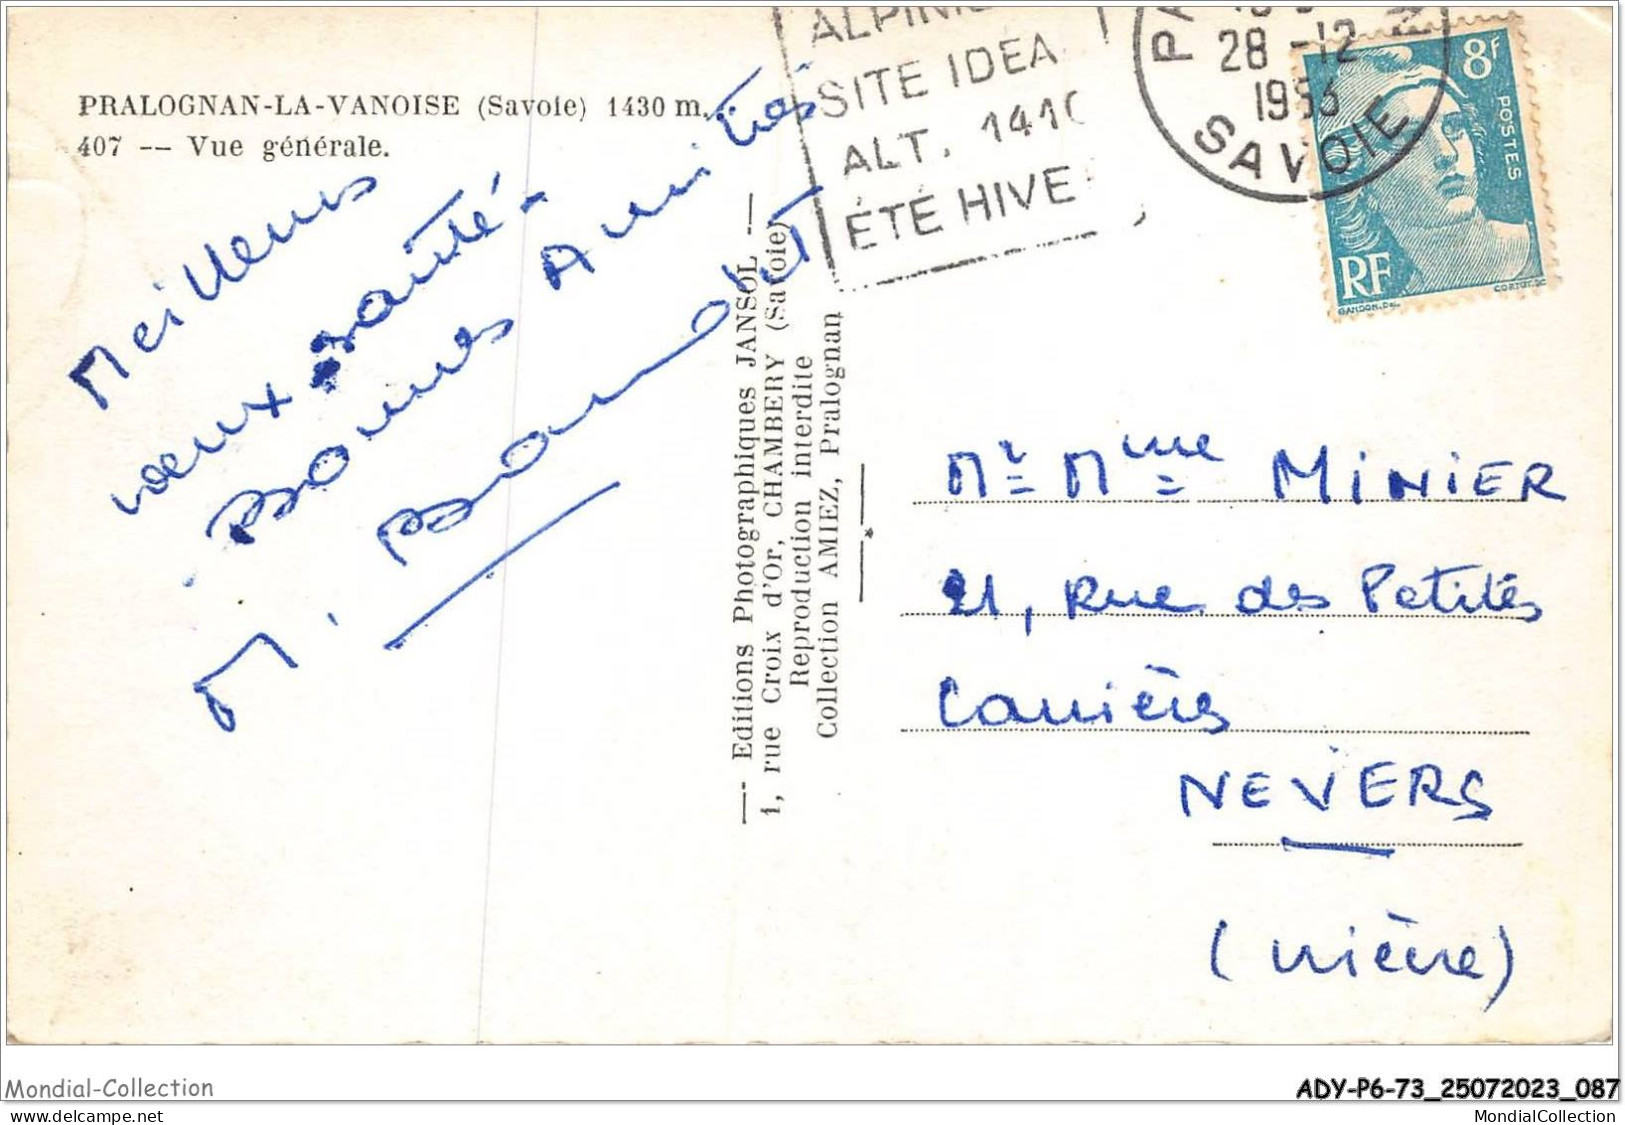 PRALOGNAN-LA-VANOISE (Savoie) 1430 m.
407 -- Vue générale.
Meilleurs
vœux santé -
Bonnes Amitiés
M.
— Editions Photographiques JANSOL —
1, rue Croix d'Or, CHAMBERY (Savoie)
Reproduction interdite
Collection AMIEZ, Pralognan
SITE IDEA
ALT. 1410
ÉTÉ HIVE
28 -12
1953
SAVOIE
8F
POSTES
RF
GANDON.Del.
CORTOT.SC
Mr Mme MINIER
21, Rue des Petites
Carrières
NEVERS
(Nièvre)
Mondial-Collection
ADY-P6-73_25072023_087
www.delcampe.net
MondialCollection